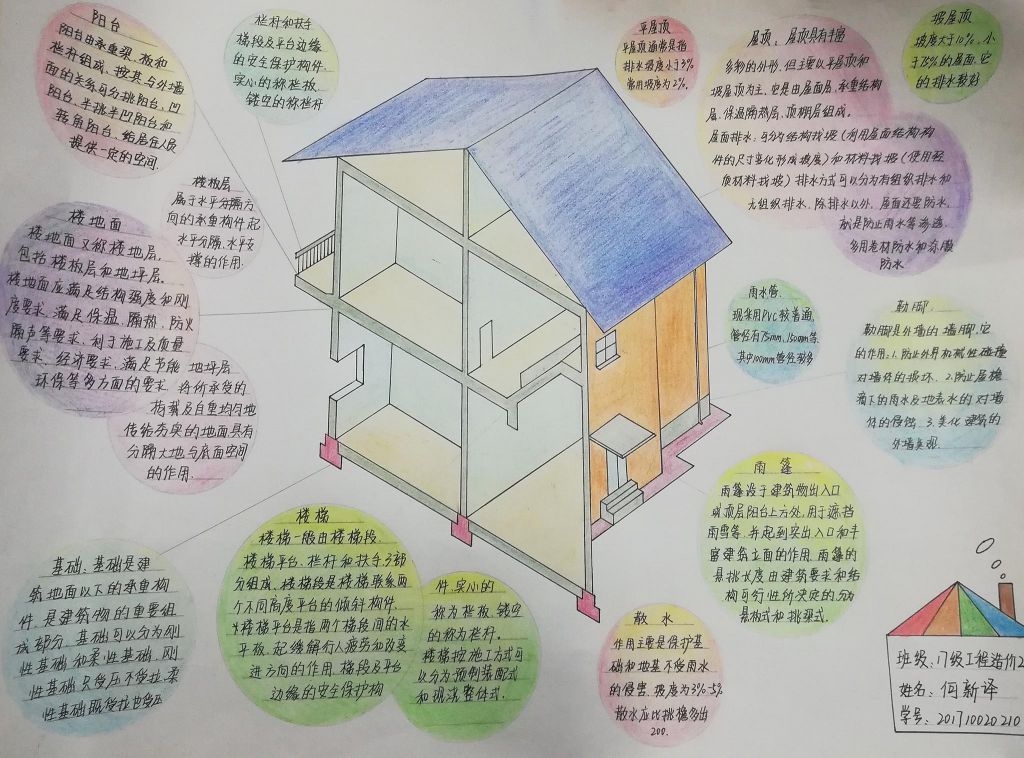 阳台
阳台由承重梁、板和
栏杆组成、按其与外墙
面的关系可分挑阳台、凹
阳台、半挑半凹阳台和
转角阳台、给居住人民
提供一定的空间.
栏杆和扶手
梯段及平台边缘
的安全保护构件.
实心的称栏板、
镂空的称栏杆
平屋顶
平屋顶通常是指
排水坡度小于3%
常用坡度为2%.
屋顶、屋顶具有丰富
多彩的外形、但主要以平屋顶和
坡屋顶为主、它是由屋面层、承重结构
层、保温隔热层、顶棚层组成。
屋面排水、可分为结构找坡（利用屋面结构构
件的尺寸变化形成坡度）和材料找坡（使用轻
质材料找坡）排水方式可以分为有组织排水和
无组织排水、除排水以外、屋面还要防水、
就是防止雨水等渗透.
多用卷材防水和
防水
坡屋顶
坡度大于10%、小
于75%的屋面.它
的排水较好
楼板层
属于水平分隔方
向的承重构件起
水平分隔、水平支
撑的作用.
楼地面
楼地面又称楼地层.
包括楼板层和地坪层.
楼地面应满足结构强度和刚
度要求、满足保温、隔热、防火
隔声等要求、利于施工及质量
要求、经济要求、满足节能
环保等多方面的要求.
地坪层
将所承受的
荷载及自重均匀地
传给夯实的地面具有
分隔大地与底面空间
的作用.
雨水管
现采用PVC较普遍
管径有75mm、100mm等
其中100mm管径较多
勒脚
勒脚是外墙的墙脚.它
的作用：1.防止外界机械性碰撞
对墙体的损坏、2.防止屋檐
滴下的雨水及地表水的对墙
体的侵蚀、3.美化建筑的
外墙美观.
雨篷
雨篷设于建筑物出入口
或顶层阳台上方处、用于遮挡
雨雪等、并起到突出入口和丰
富建筑立面的作用.雨篷的
悬挑长度由建筑要求和结
构可行性所决定的.分为
悬构式和挑梁式.
基础、基础是建
筑地面以下的承重构
件.是建筑物的重要组
成部分.基础可以分为刚
性基础和柔性基础.刚
性基础只受压不受拉.柔
性基础既受拉也受压
楼梯
楼梯一般由楼梯段、
楼梯平台、栏杆和扶手3部
分组成、楼梯段是楼梯联系两
个不同高度平台的倾斜构件.
楼梯平台是指两个梯段间的水
平板、起缓解行人疲劳和改变
进方向的作用.梯段及平台
边缘的安全保护构
件、实心的
称为栏板、镂空
的称为栏杆.
楼梯按施工方式可
以分为预制装配式
和现浇整体式.
散水
作用主要是保护基
础和地基不受雨水
的侵害.坡度为3%-5%
散水应比挑檐多出
200.
班级：17级工程造价2
姓名：何新译
学号：201710020210